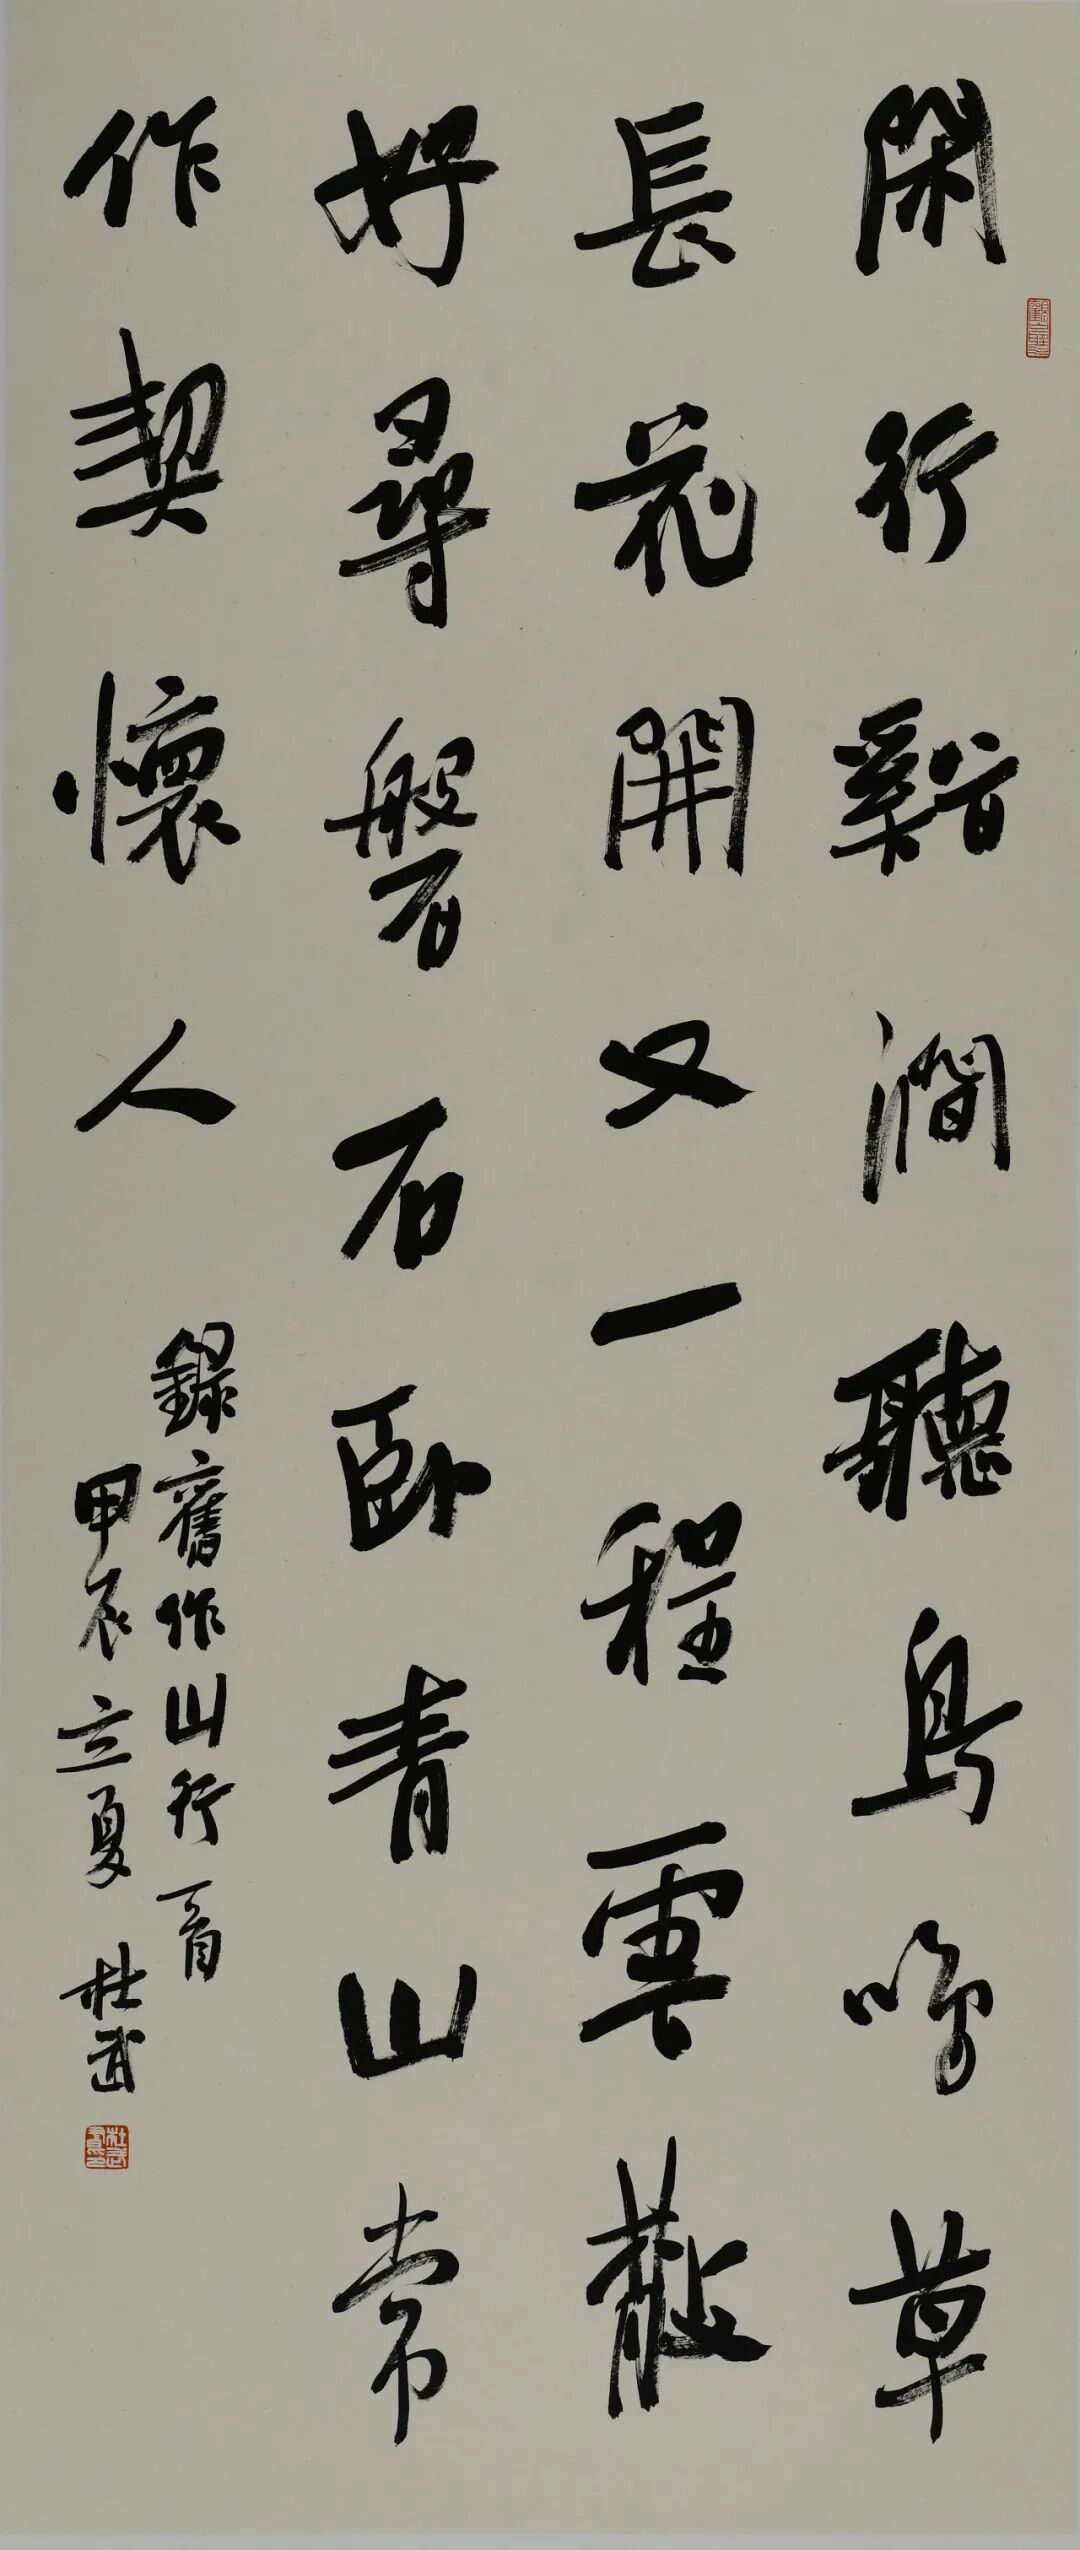 閑行谿澗聽鳥鳴草
長花開又一程雲散
好尋磐石臥青山常
作契懷人
錄舊作山行一首
甲辰立夏杜武